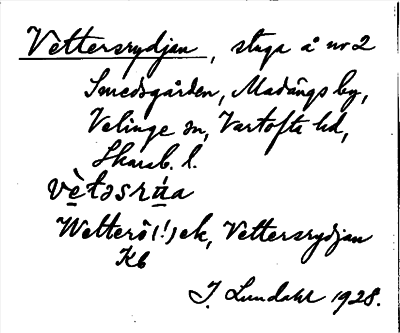 Vettersrydjan, stuga å nr 2
Smedsgården, Madängs by,
Velinge sn, Vartofta hd,
Skarab. l.
vètəsrı̀a
Wetterö(!)ek, Vettersrydjan
Kb
I. Lundahl 1928.